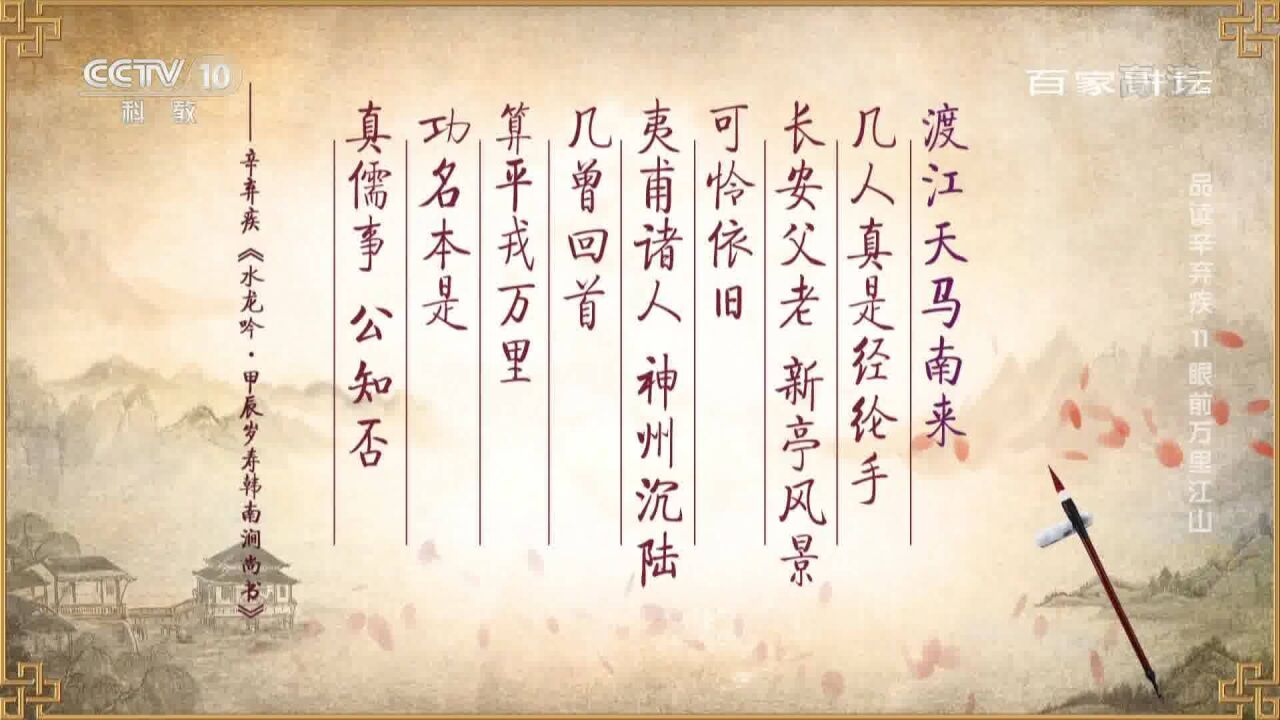 CCTV 10
科教
百家讲坛
品读辛弃疾 11 眼前万里江山
渡江天马南来
几人真是经纶手
长安父老 新亭风景
可怜依旧
夷甫诸人 神州沉陆
几曾回首
算平戎万里
功名本是
真儒事 公知否
——辛弃疾《水龙吟·甲辰岁寿韩南涧尚书》